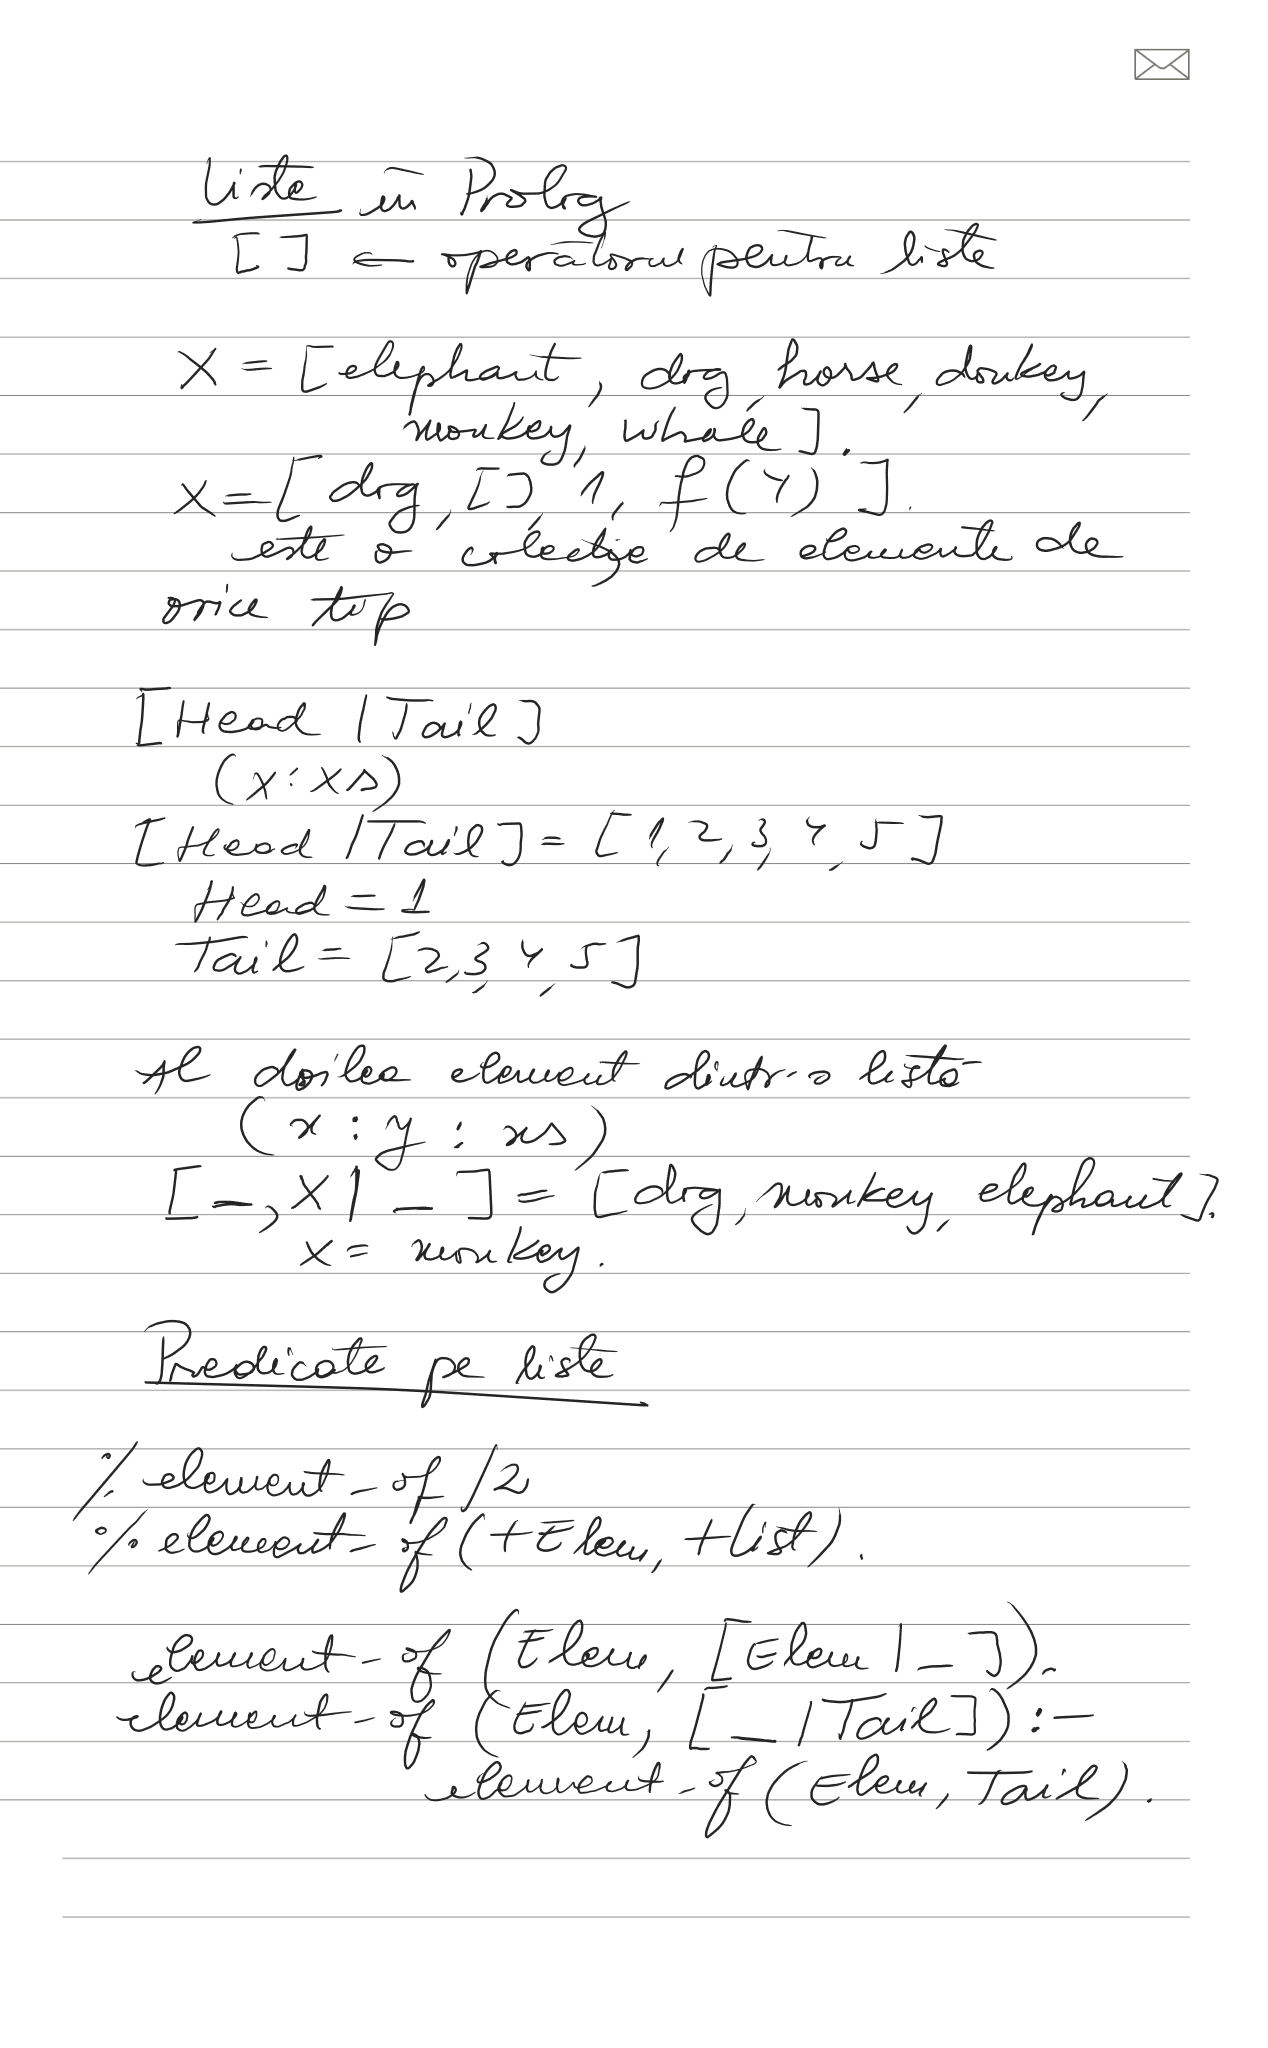 Liste în Prolog
[] ← operatorul pentru liste
X = [elephant, dog, horse, donkey,
monkey, whale].
X = [dog, [], 1, f(Y)].
este o colecție de elemente de
orice tip
[Head | Tail]
(x:xs)
[Head | Tail] = [1, 2, 3, 4, 5]
Head = 1
Tail = [2, 3, 4, 5]
Al doilea element dintr-o listă
(x : y : xs)
[_, X | _] = [dog, monkey, elephant].
X = monkey.
Predicate pe liste
% element_of /2
% element_of (+Elem, +List).
element_of (Elem, [Elem | _]).
element_of (Elem, [_ | Tail]) :-
element_of (Elem, Tail).